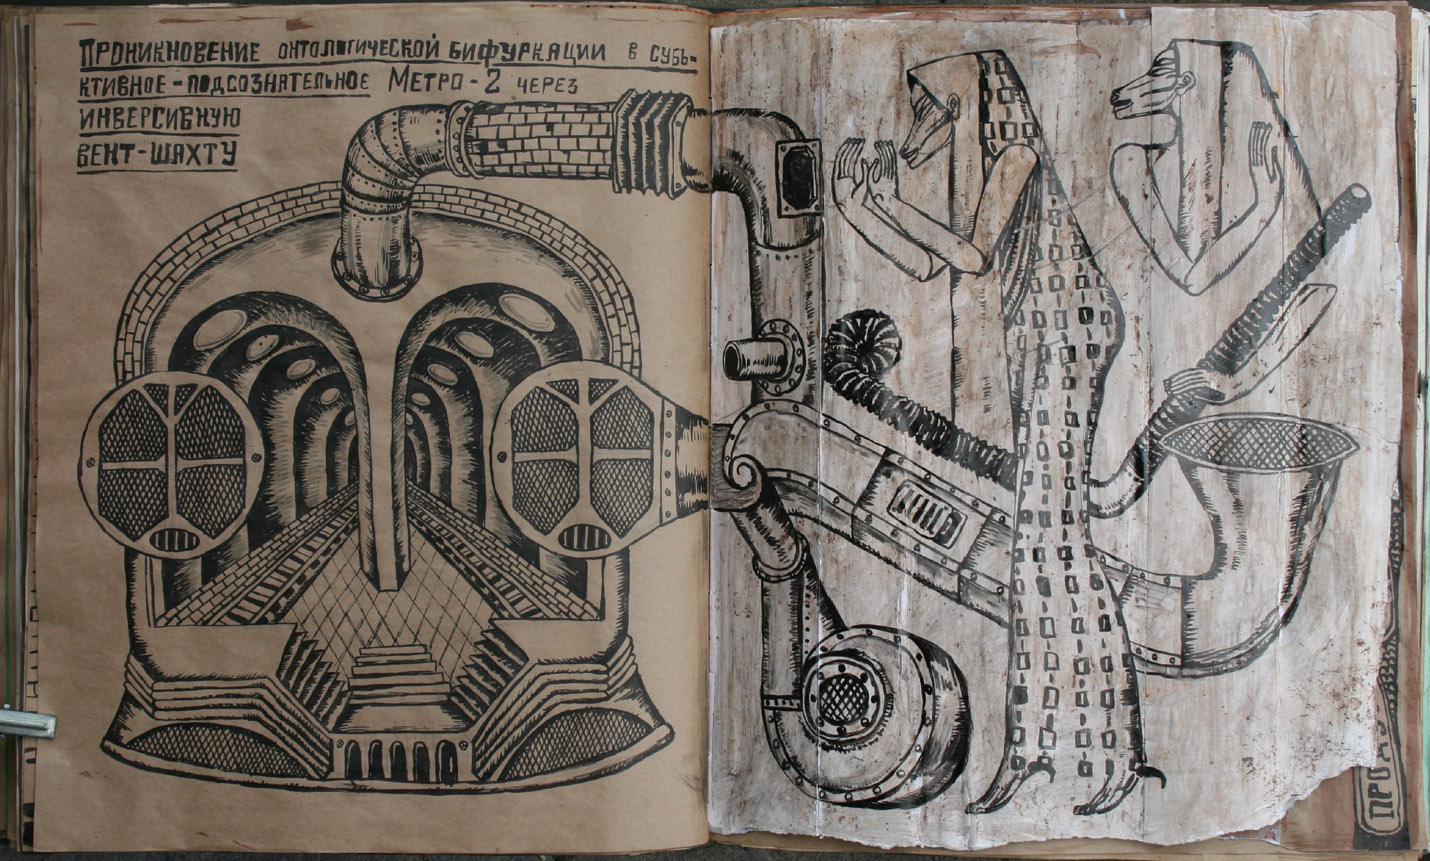 Проникновение онтологической бифуркации в субъ-
ктивное-подсознательное Метро-2 через
инверсивную
вент-шахту